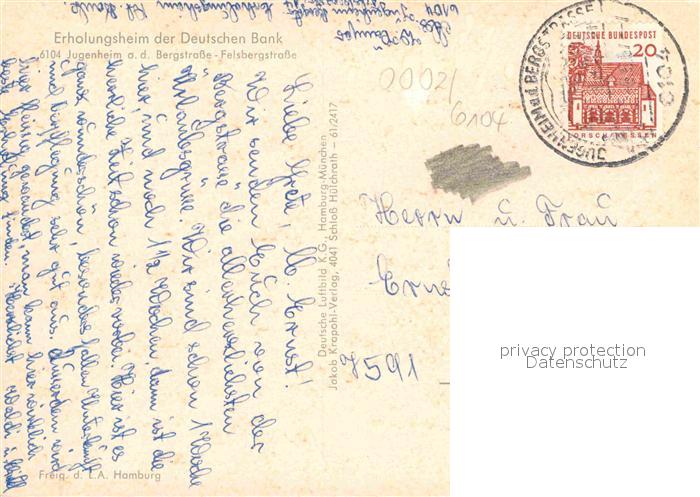 Erholungsheim der Deutschen Bank
6104 Jugenheim a. d. Bergstraße - Felsbergstraße
Liebe Gretl, lb. Ernst!
Wir senden Euch von der
"Bergstrasse" die allerherzlichsten
Urlaubsgrüsse. Wir sind schon 1 Woche
hier und noch 1 1/2 Wochen, dann ist die
herrliche Zeit schon wieder vorbei. Hier ist es
ganz wunderschön, besonders fallen Unterkunft
und Verpflegung sehr gut aus. Ausserdem wird
hier man kann hier wirklich
beste Erholung finden. Herzlichst
Freig. d. L.A. Hamburg
Deutsche Luftbild K.G., Hamburg-München
Jakob Krapohl-Verlag, 4041 Schloß Hülchrath – 61/2417
0002/
6104
DEUTSCHE BUNDESPOST
20
LORSCH/HESSEN
JUGENHEIM a.d. BERGSTRASSE
6104
Herrn u. Frau
7591
privacy protection
Datenschutz